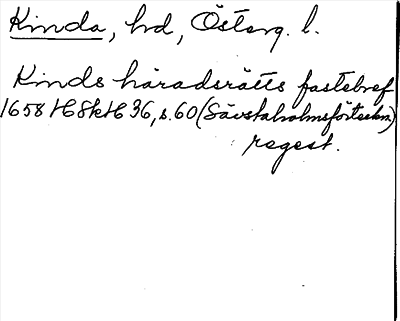 Kinda, hd, Österg. l.
Kinds häradsrätts fastebref
1658 HSkH 36, s. 60 (Sävstaholmsförteckn)
regest.